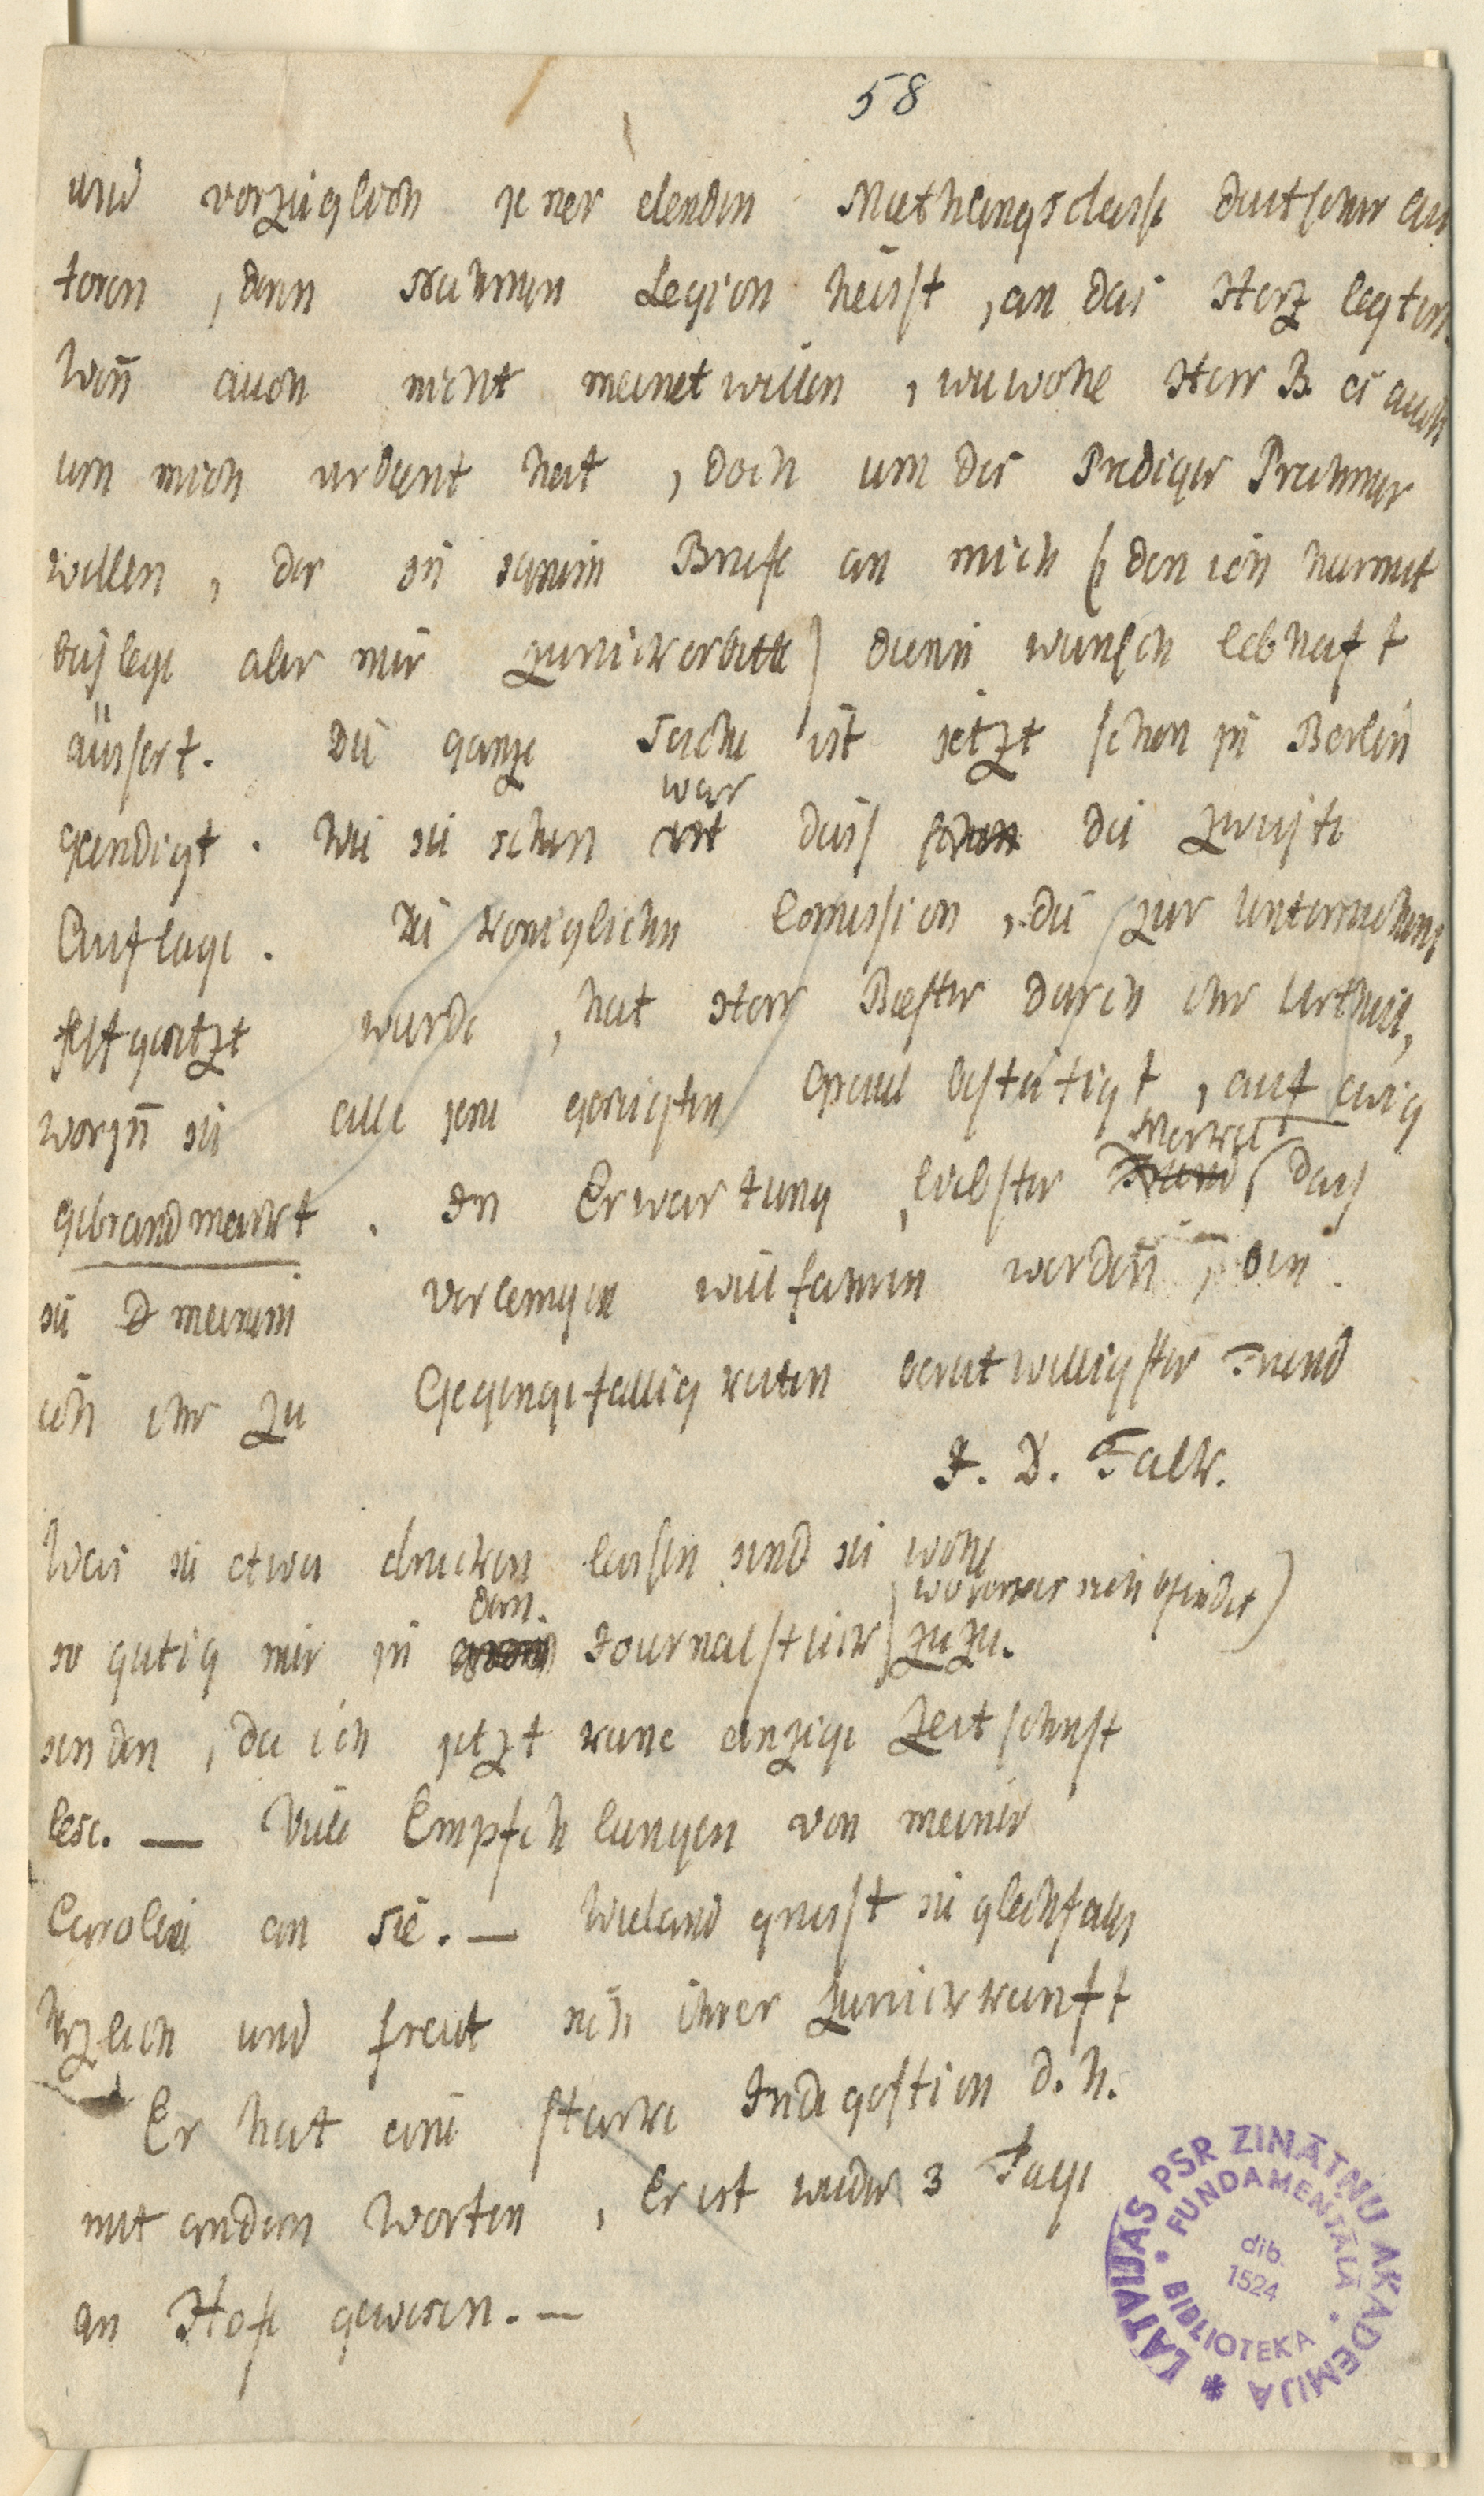 58
und vorzüglich jener elenden Miethlingsclasse deutscher Au
toren, deren Nahmen Legion heist, an das Herz legten.
Weñ auch nicht meinetwillen, wiewohl Herr B. es auch
um mich verdient hat, doch um des Prediger Prahmer
willen, der in seinem Briefe an mich (den ich hiermit
beÿlege aber mir zurückerbitte) diesen Wunsch lebhaft
äussert. Die ganze Sache ist jetzt schon in Berlin
geendigt. Wie sie schon ist war dies schon die zweite
Auflage. Die königlichen Comission, die zur Untersuchung
festgesetzt wurde, hat Herr Biester durch ihr Urtheil,
worin sie alle jene gerügten Greuel bestätigt, auf ewig
gebrandmarkt. In Erwartung, liebster Freund Merkel, das
sie meinem Verlangen willfahren werden, bin
ich ihr zu Gegengefälligkeiten bereitwilligster Freund
J. D. Falk.
Was sie etwa drucken lassen sind sie wohl
so gütig mir in dem Journalstück (worinn es sich befindet) zuzu-
senden, da ich jetzt keine einzige Zeitschrift
lese. — Viele Empfehlungen von meiner
Caroline an Sie. — Wieland grüsst sie gleichfalls
herzlich und freut sich ihrer Zurückkunft
Er hat eine starke Indigestion d. h.
mit andern Worten, Er ist wieder 3 Tage
an Hofe gewesen. —
LATVIJAS PSR ZINĀTŅU AKADEMIJA
FUNDAMENTĀLĀ BIBLIOTEKA
dib.
1524